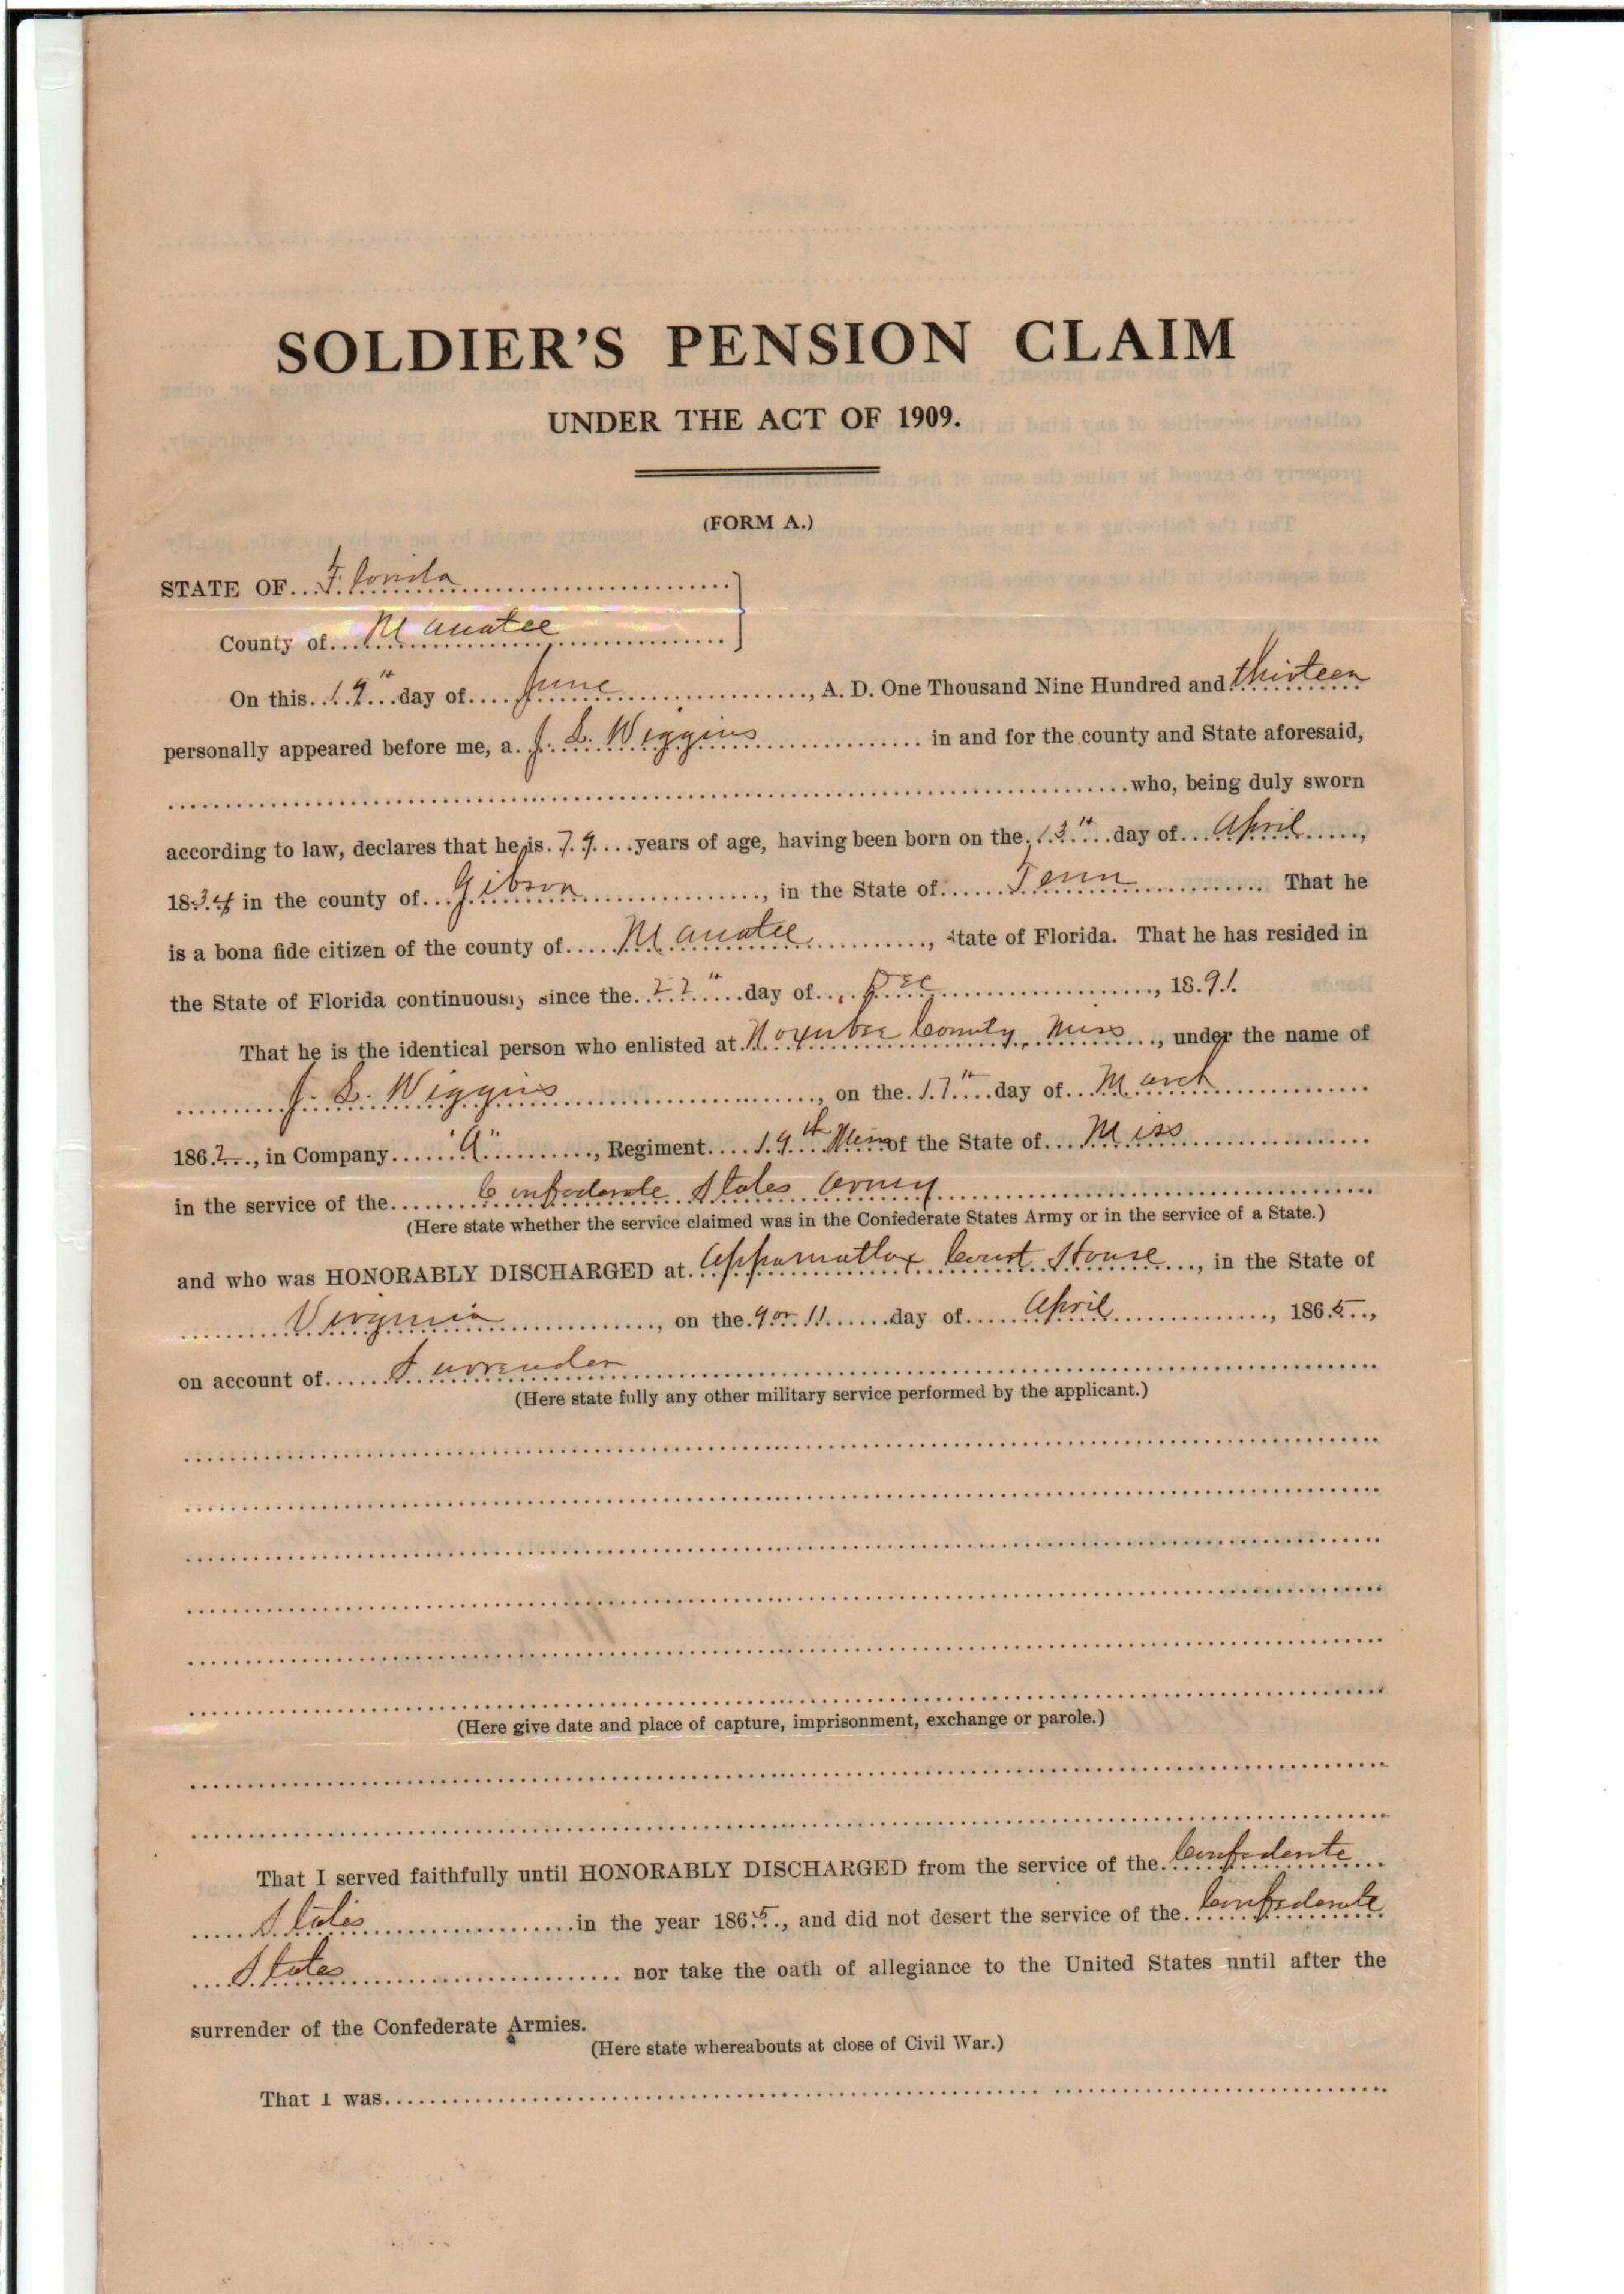 SOLDIER'S PENSION CLAIM
UNDER THE ACT OF 1909.
(FORM A.)
STATE OF Florida
County of Manatee
On this 19" day of June, A. D. One Thousand Nine Hundred and thirteen
personally appeared before me, a J. L. Wiggins in and for the county and State aforesaid,
who, being duly sworn
according to law, declares that he is 79 years of age, having been born on the 13" day of April,
1834 in the county of Gibson, in the State of Tenn That he
is a bona fide citizen of the county of Manatee, State of Florida. That he has resided in
the State of Florida continuously since the 22" day of Dec, 1891.
That he is the identical person who enlisted at Noxubee County, Miss, under the name of
J. L. Wiggins, on the 17" day of March
1862, in Company "A", Regiment 19th Miss of the State of Miss
in the service of the Confederate States Army
(Here state whether the service claimed was in the Confederate States Army or in the service of a State.)
and who was HONORABLY DISCHARGED at Appamattox Court House, in the State of
Virginia, on the 9 or 11 day of April, 1865,
on account of Surrender
(Here state fully any other military service performed by the applicant.)
(Here give date and place of capture, imprisonment, exchange or parole.)
That I served faithfully until HONORABLY DISCHARGED from the service of the Confederate
States in the year 1865, and did not desert the service of the Confederate
States nor take the oath of allegiance to the United States until after the
surrender of the Confederate Armies.
(Here state whereabouts at close of Civil War.)
That I was